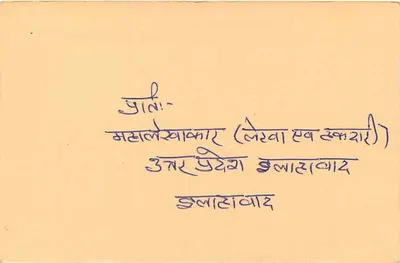 प्रति:-
महालेखाकार (लेखा एव हकदारी)
उत्तर प्रदेश इलाहावाद
इलाहावाद